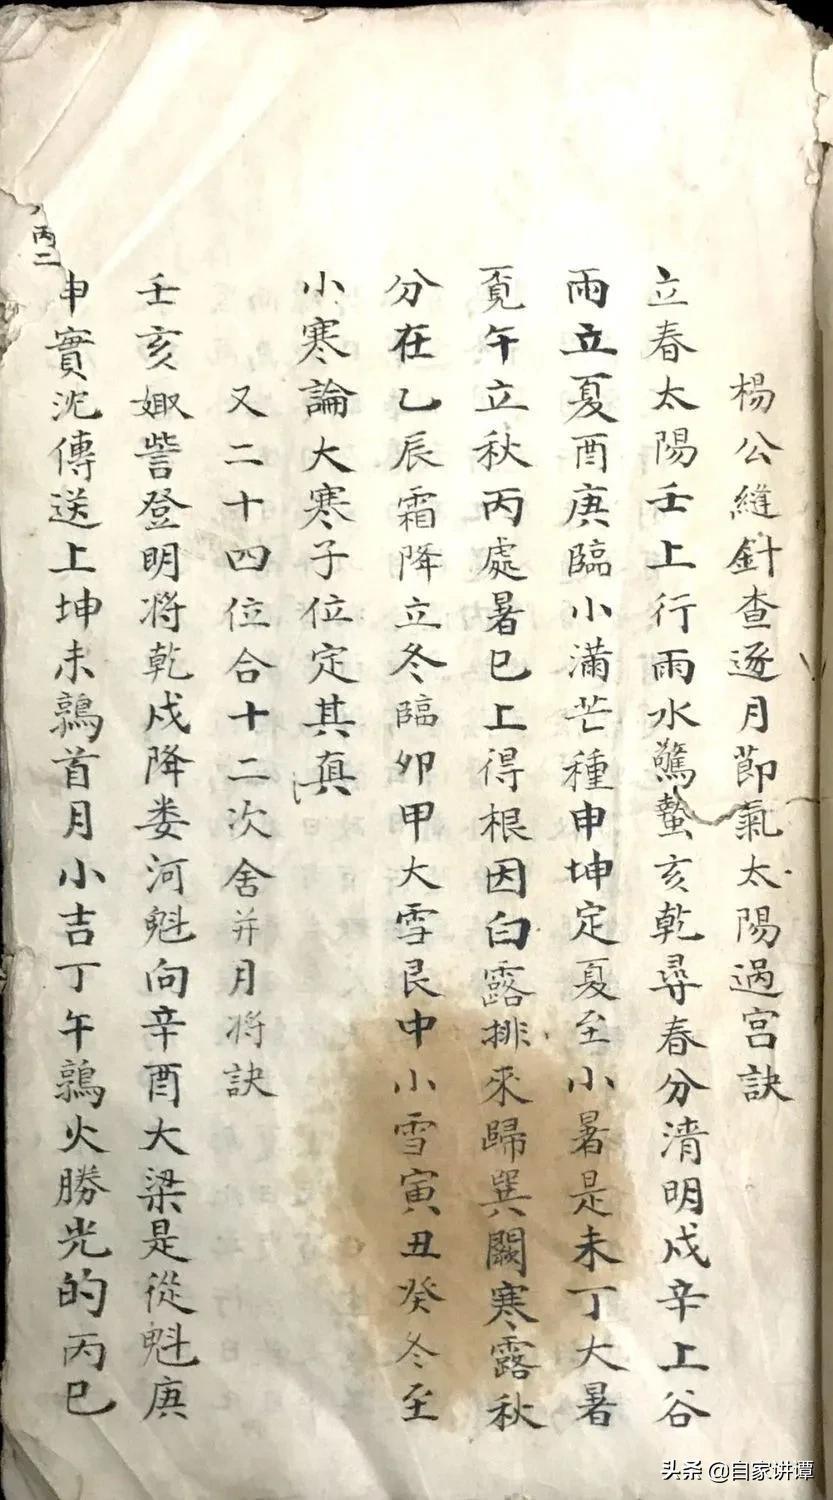 楊公縫針查逐月節氣太陽過宮訣
立春太陽壬上行雨水驚蟄亥乾尋春分清明戍辛上谷
雨立夏酉庚臨小滿芒種申坤定夏至小暑是未丁大暑
覓午立秋丙處暑巳上得根因白露排來歸巽闕寒露秋
分在乙辰霜降立冬臨卯甲大雪艮中小雪寅丑癸冬至
小寒論大寒子位定其真
又二十四位合十二次舍并月将訣
壬亥娵訾登明将乾戍降娄河魁向辛酉大梁是從魁庚
申實沈傳送上坤未鶉首月小吉丁午鶉火勝光的丙巳
丙二
头条 @自家讲谭